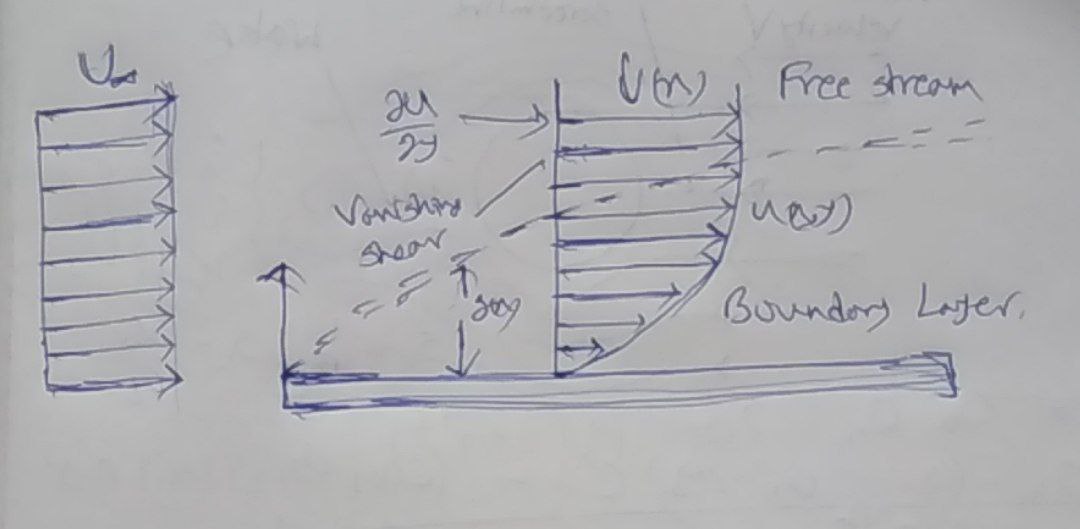 U∞
∂U
∂y
U(x)
Free stream
Vanishing
shear
u(x,y)
Boundary Layer.